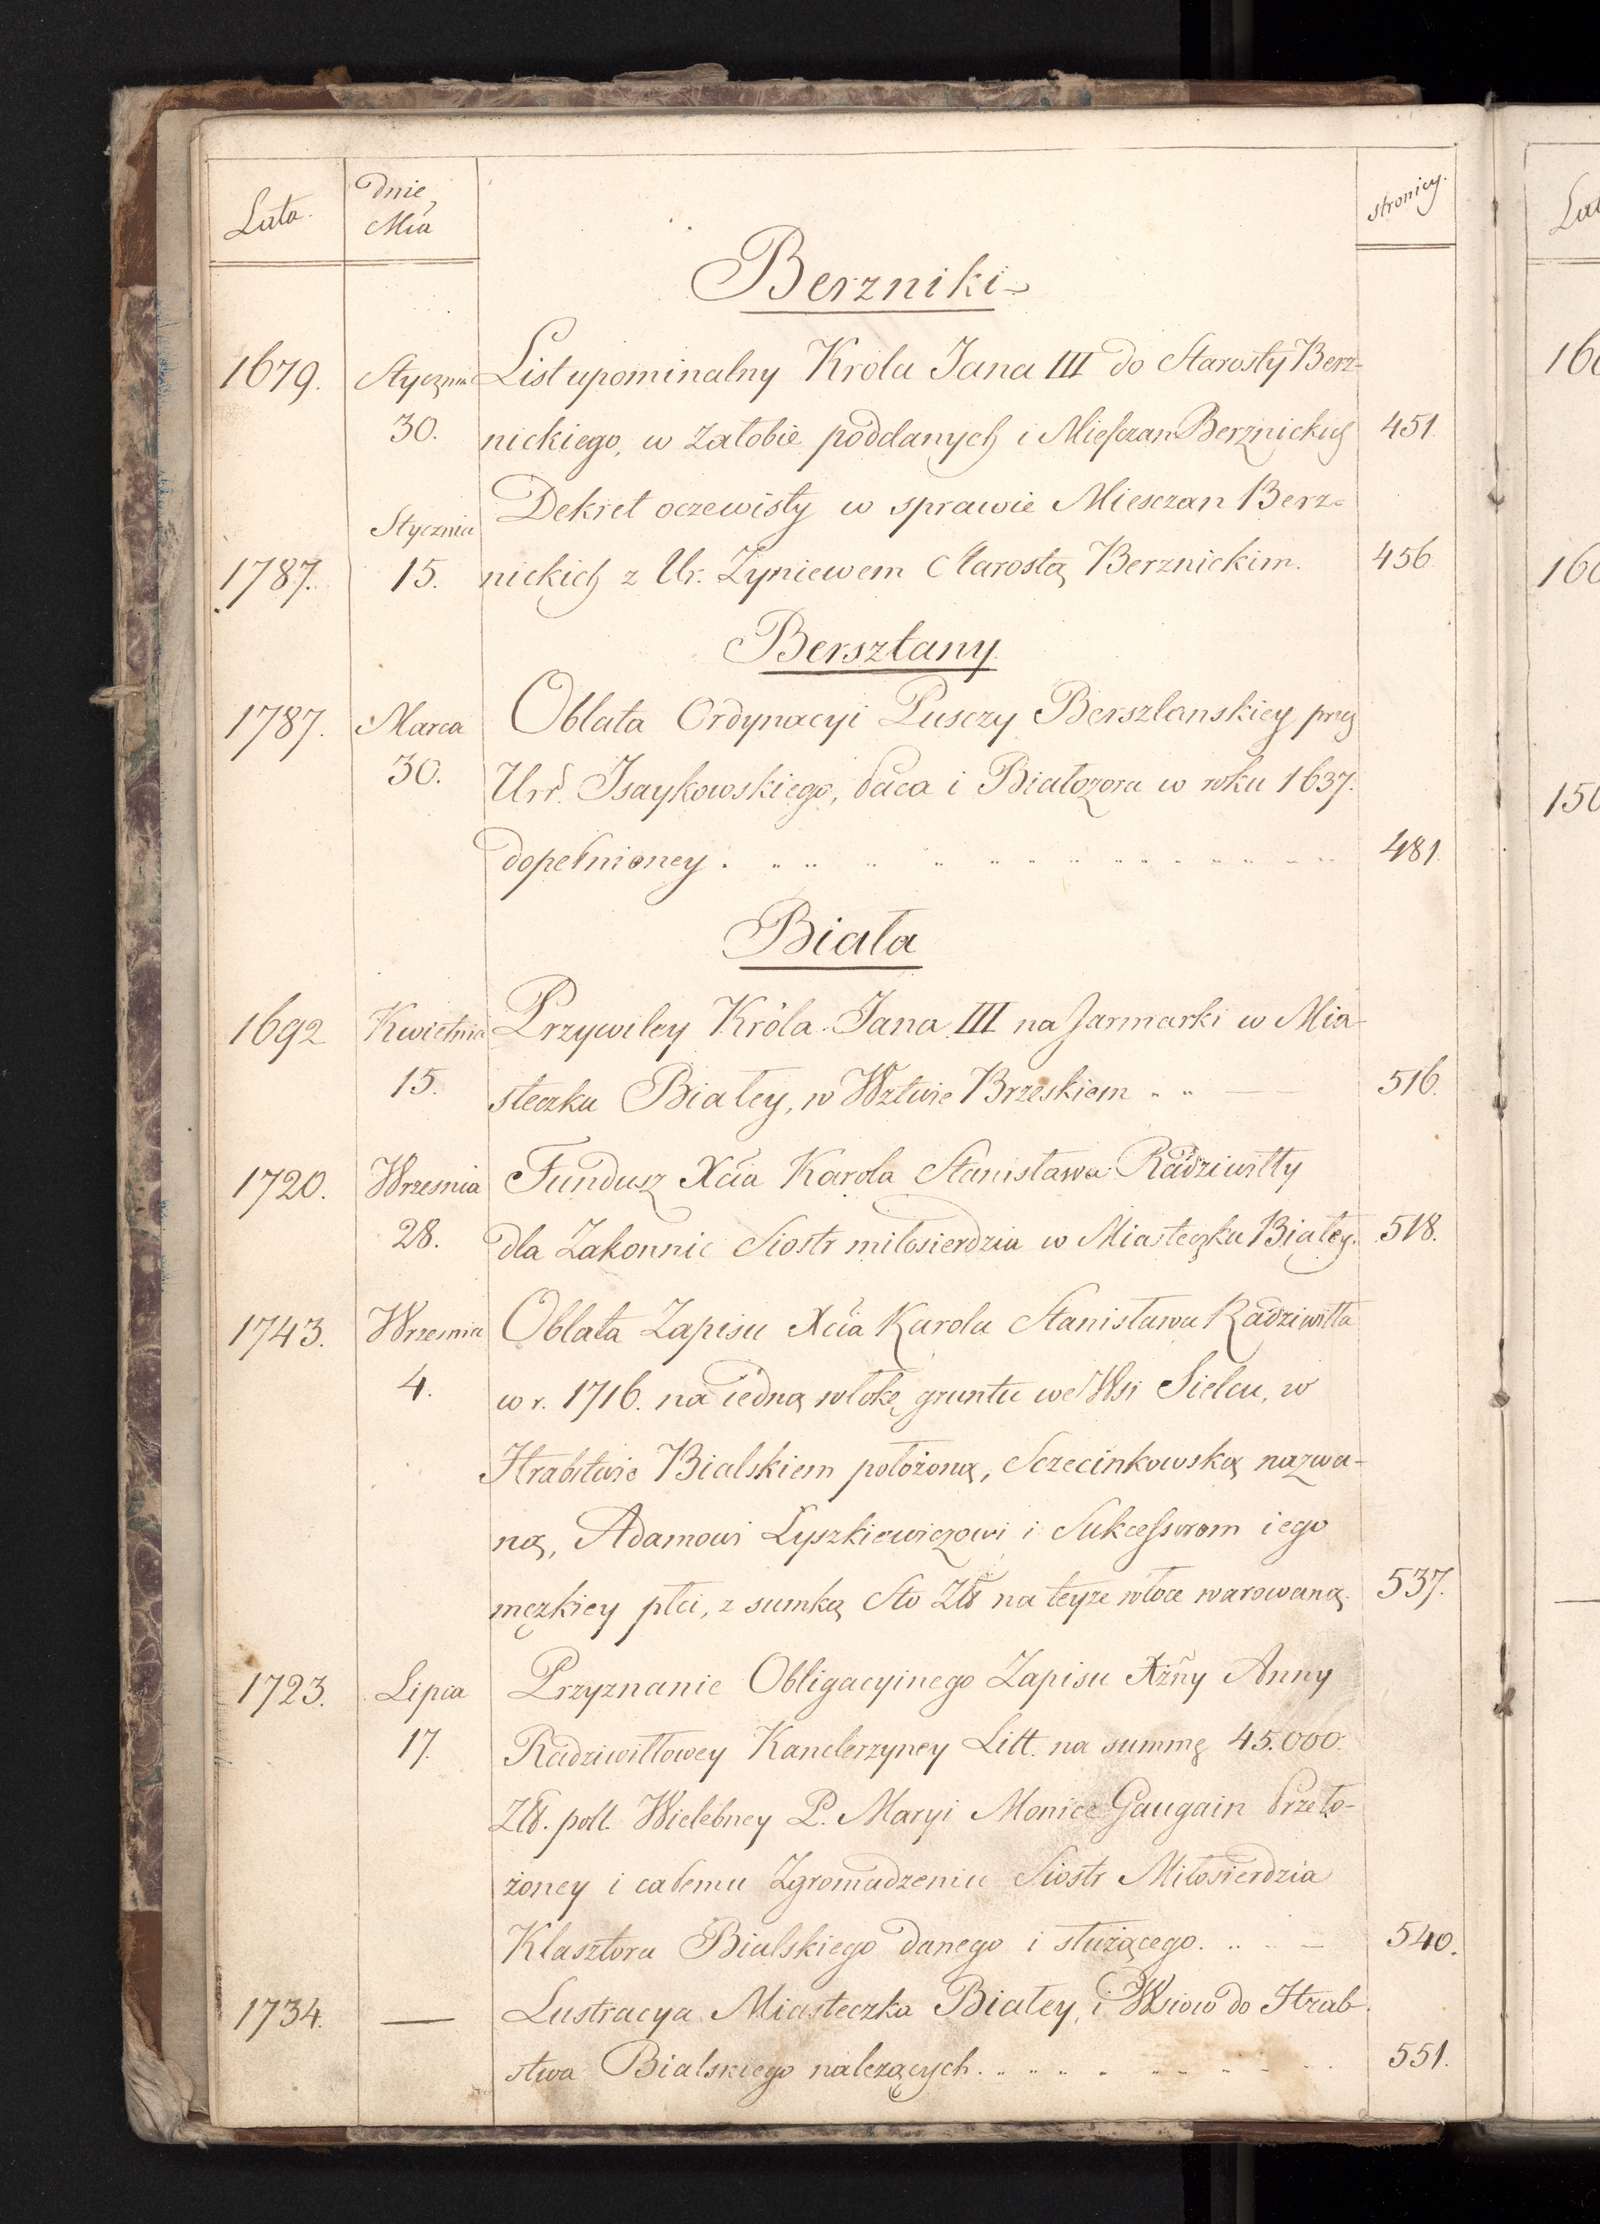 Lata.
dnie,
Mcá
stronicy.
Berzniki
1679. Stycznia List upominalny Krola Jana III do Starosty Berz-
30. nickiego, w Załobie poddanych i Miesczan Berznickich 451.
Stycznia Dekret oczewisty w sprawie Miesczan Berz-
1787. 15. nickich z Ur. Zyniewem Starostą Berznickim. 456.
Bersztany
1787. Marca Oblata Ordynacyi Pusczy Bersztanskiey przez
30. Urr. Isaykowskiego, Paca i Białozora w roku 1637.
dopełnioney 481.
Biała
1692 Kwietnia Przywiley Króla Jana III na Jarmarki w Mia-
15. steczku Białey, w Wztwie Brzeskiem 516.
1720. Wrzesnia Fundusz Xcia Karola Stanisława Radziwiłły
28. dla Zakonnic Siostr miłosierdzia w Miasteczku Białey. 518.
1743. Wrzesnia Oblata Zapisu Xcia Karola Stanisława Radziwiłła
4. w r. 1716. na iedną włokę gruntu we Wsi Sielcu, w
Hrabstwie Bialskiem położoną, Sczecinkowską nazwa-
ną, Adamowi Łyszkiewiczowi i Sukcessorom iego
męzkiey płci, z sumką Sto Złł na teyże włoce warowaną. 537.
1723. Lipca Przyznanie Obligacyinego Zapisu Xżny Anny
17. Radziwiłłowey Kanclerzyney Litt. na summę 45.000.
Złł. poll. Wielebney P. Maryi Monice Gaugain Przeło-
żoney i całemu Zgromadzeniu Siostr Miłosierdzia
Klasztoru Bialskiego danego i służącego. 540.
1734. — Lustracya Miasteczka Białey, i Wsiow do Hrab-
stwa Bialskiego należących. 551.
Lat
160
160
150